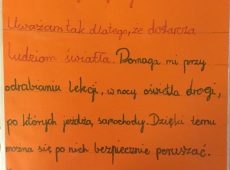 Uważam tak dlatego, że dostarcza
ludziom światła. Pomaga mi przy
odrabianiu lekcji, w nocy oświetla drogi,
po których jeżdżą samochody. Dzięki temu
można się po nich bezpiecznie poruszać.